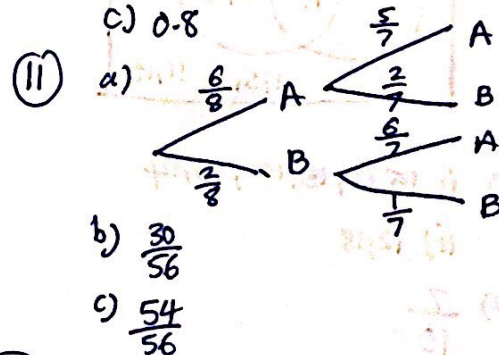 c) 0.8
11 a) 6/8 A 5/7 A
2/7 B
2/8 B 6/7 A
1/7 B
b) 30/56
c) 54/56